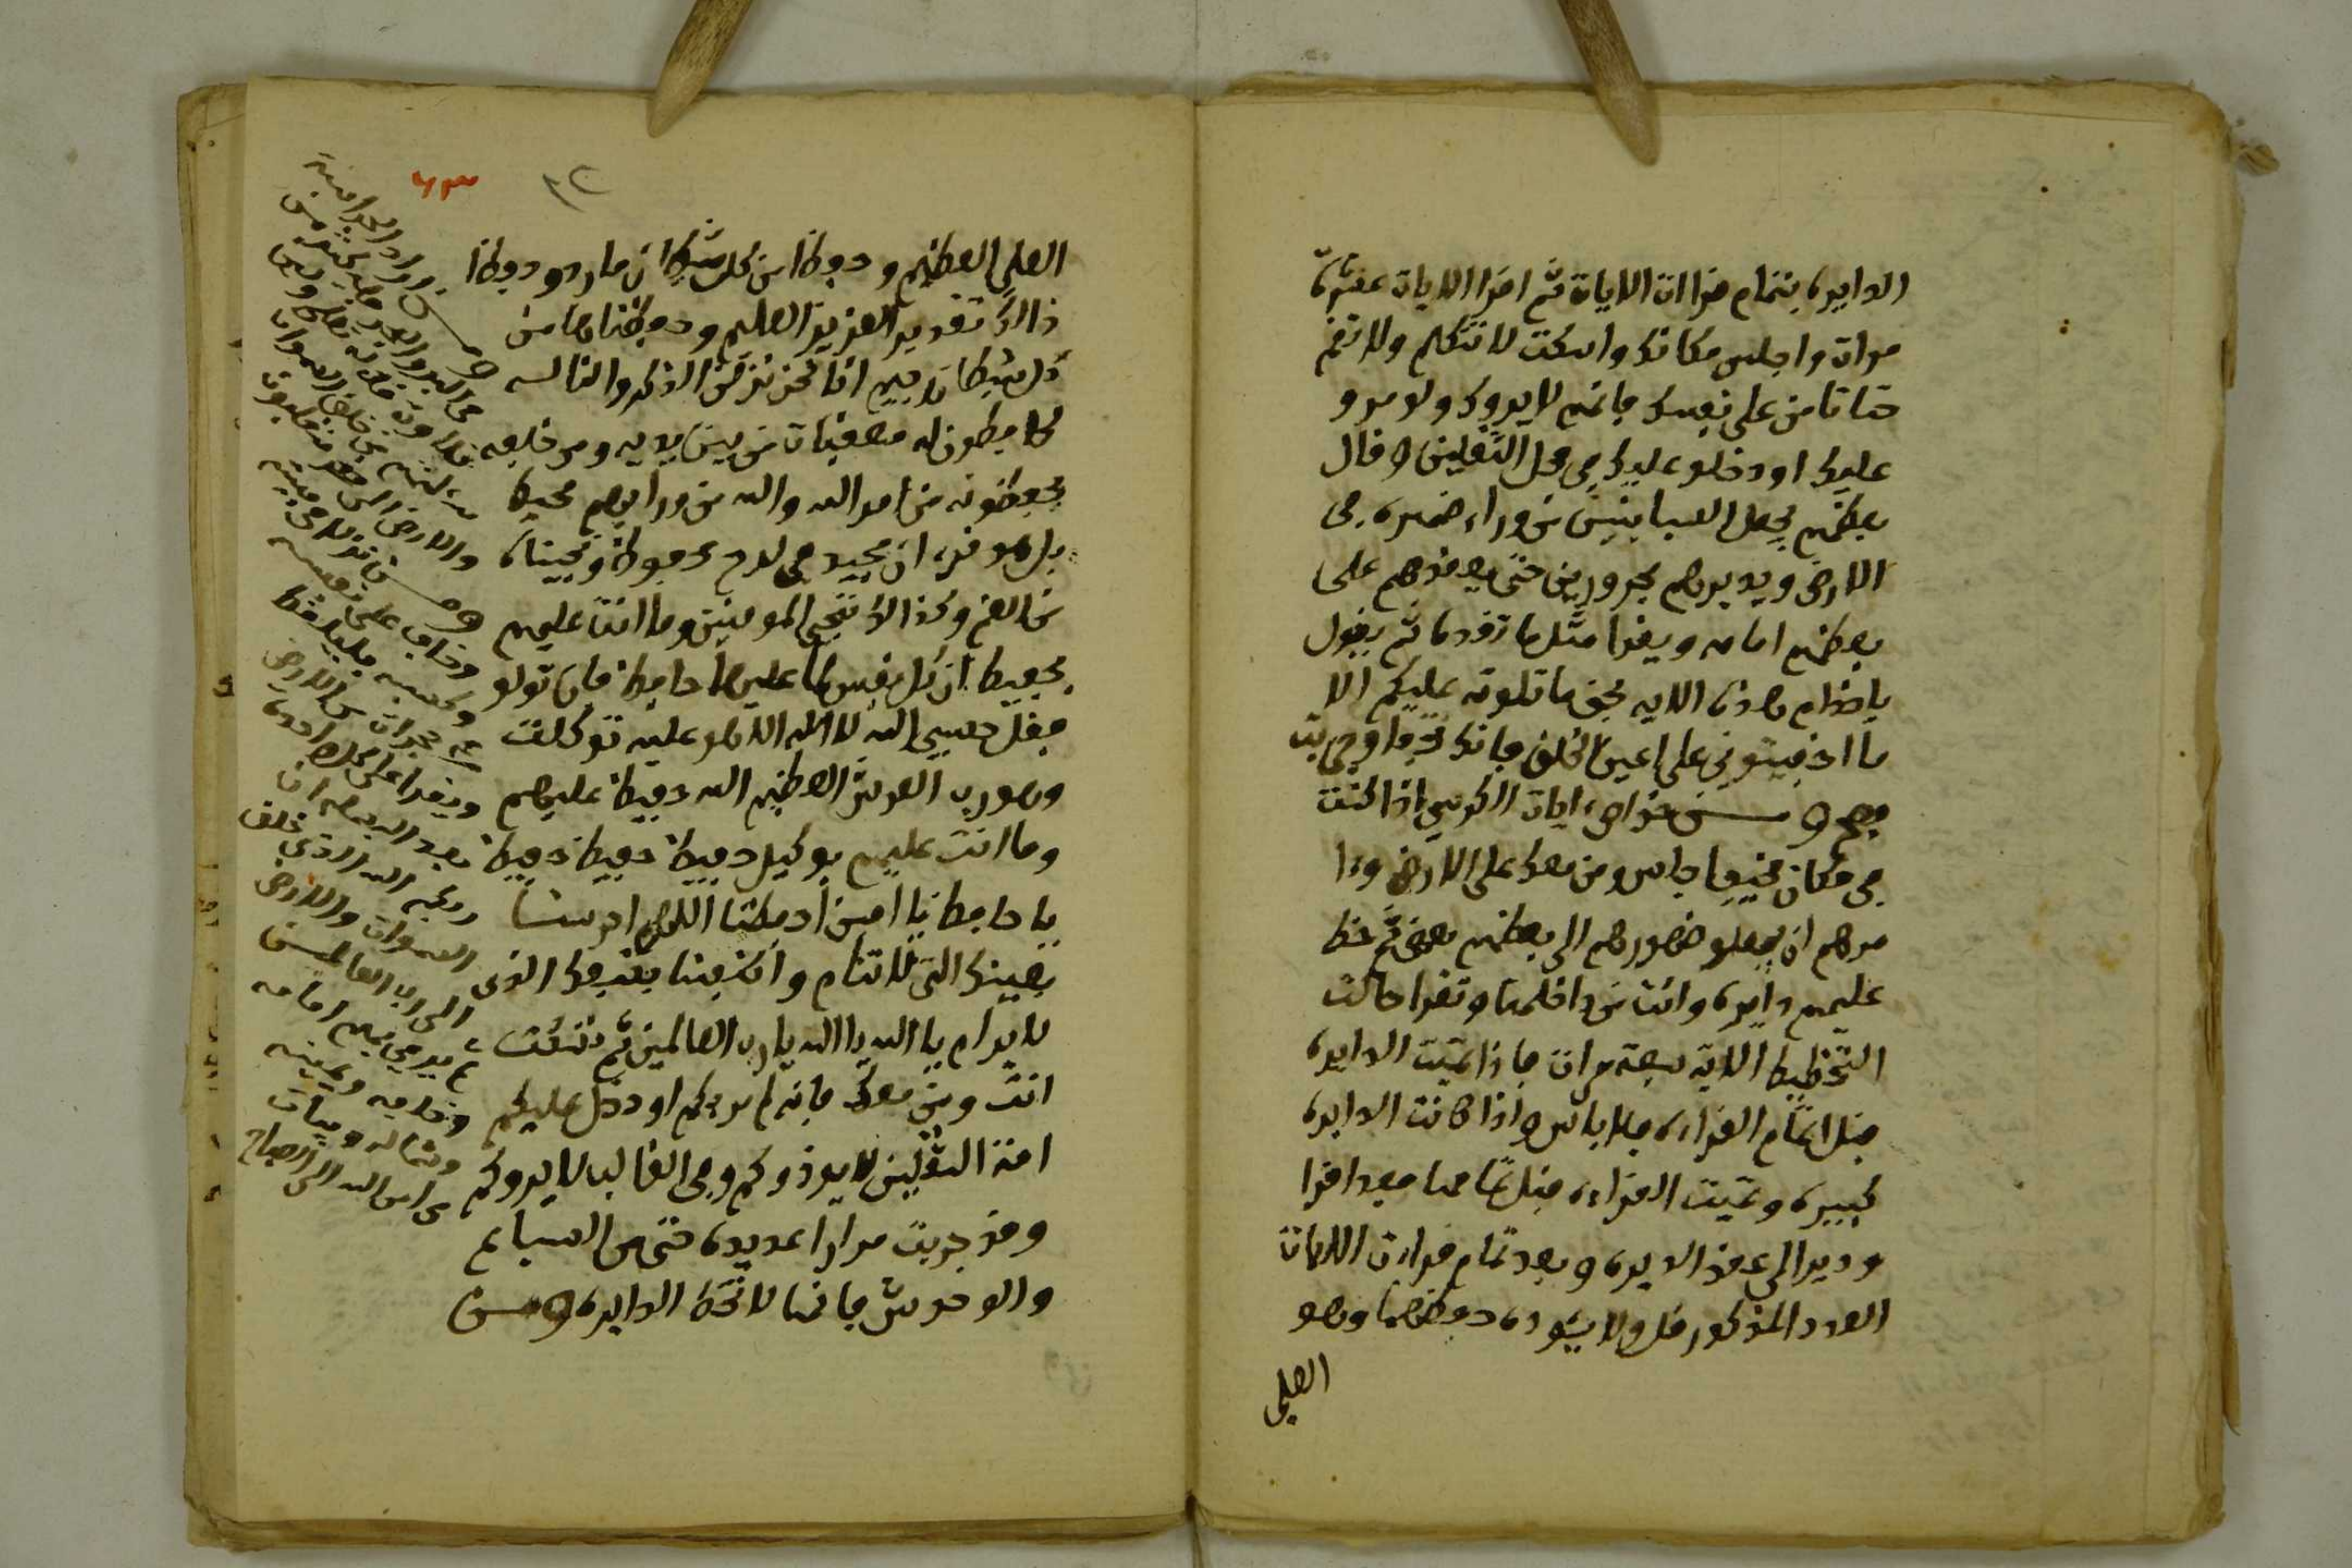 الدايره بتمام قراات الايات ثم اقرا الايات عشرة
مرات واجلس مكانك واسكت لا تتكلم ولا تقم
حتا تامن على نفسك فانهم لا يروك ولو مرو
عليك او دخلو عليك في محل الثقلين وقال
بعضهم يجعل السبابتين من وراء ضهره في
الارض ويديرهم مجرورين حتى يعقدهم على
بعضهم امامه ويقرا مثل ما تقدم ثم يقول
ياخدام هذه الايه بحق ما تلوته عليكم الا
ما اخفيتوني على اعين الخلق فانك تختفا وجربت
فصح ومن خواص ايات الكرسي اذا كنت
في مكان مخيف جلس ومن معك على الارض
مرهم ان يجعلو ضهورهم الى بعضهم بعض ثم خط
عليهم دايره وانت من داخلها وتقرا حالت
التخطيط الايه سبعة مرات فاذا تميت الدايره
قبل اتمام القراءه فلا باس واذا كانت الدايره
كبيره وتميت القراءه قبل تمامها فعد اقرا
ودير الى عقد الديره وبعد تمام قرات الايات
العدد المذكور قل ولا يئوده حفظهما وهو
العلي
٨٢
العلي العظيم وحفظا من كل شيطان مارد وحفظا
ذالك تقدير العزيز العليم وحفظناها من
كل شيطان رجيم انا نحن نزلنا الذكر وانا له
لحافظون له معقبات من بين يديه ومن خلفه
يحفظونه من امر الله والله من ورايهم محيط
بل هو قرءان مجيد في لوح محفوظ ونجيناه
من الغم وكذالك ننجي المومنين وما انت عليهم
بحفيظ ان كل نفس لما عليها حافظ فان تولو
فقل حسبي الله لا اله الا هو عليه توكلت
وهو رب العرش العظيم الله حفيظ عليهم
وما انت عليهم بوكيل حفيظ حفيظ حفيظ
يا حافظ يا امين احفظنا اللهم احرسنا
بعينك التي لا تنام واكنفنا بكنفك الذي
لا يرام يا الله يا الله يا رب العالمين ثم تسكت
انت ومن معك فانه لم يركم او دخل عليكم
امة الثقلين لا يوذوكم وفي الغالب لا يروكم
وقد جربت مرارا عديده حتى من السباع
والوحوش فانها لا تخط الدايره ومن
ومن اراد
والارض
وخاف على نفسه
ويقرا على كل
بعد البسمله ان
ربكم الله الذي خلق
السموات والارض
الى رب العالمين
ثم يرمي بهم امامه
وخلفه ويمينه
وشماله ويبات
في امن الله الى الصباح